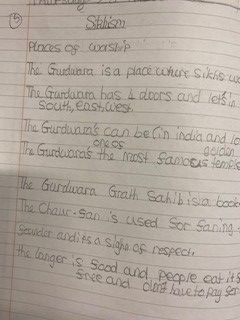 Sikhism
Places of worship
The Gurdwara is a place where sikhs wo
The Gurdwara has 4 doors and lots
South, east, west.
The Gurdwara's can be in india and lo
one of golden
The Gurdwara's the most famous temple
The Gurdwara Grath Sahib is a book
The Chaur-San is used for faring
founder and its a sign of respect.
the langer is food and people eat it s
free and dont have to pay for